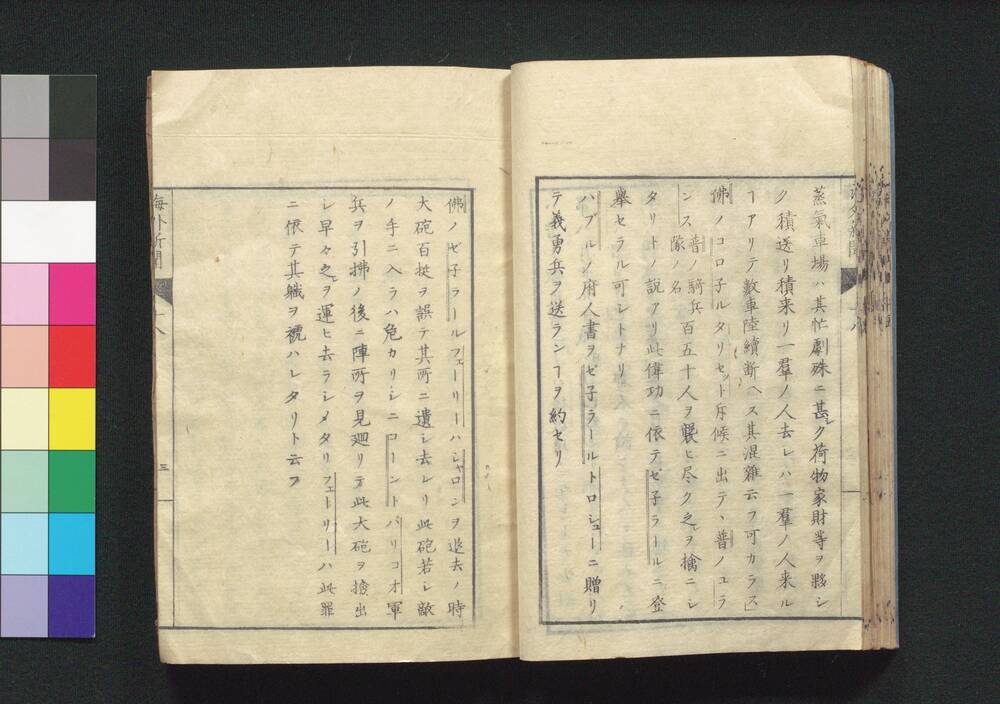 蒸氣車場ハ其忙劇殊ニ甚シク荷物家財等ヲ夥シ
ク積送リ積来リ一羣ノ人去レハ一羣ノ人来ル
ヿアリテ數車陸續断ヘス其混雜云フ可カラス」
佛ノコロ子ルタリセット斥候ニ出テ、普ノユラ
ンス普ノ騎兵隊ノ名百五十人ヲ襲ヒ尽ク之ヲ擒ニシ
タリトノ説アリ此偉功ニ依テゼ子ラールニ登
擧セラル可シトナリ
ハブルノ府人書ヲゼ子ラールトロシューニ贈リ
テ義勇兵ヲ送ランヿヲ約セリ
佛ノゼ子ラールフェーリーハシャロンヲ退去ノ時
大砲百挺ヲ誤テ其所ニ遺シ去レリ此砲若シ敵
ノ手ニ入ラハ危カリシニコーントパリコオ軍
兵ヲ引拂ノ後ニ陣所ヲ見廻リテ此大砲ヲ撿出
シ早々之ヲ運ヒ去ラシメタリフェーリーハ此罪
ニ依テ其職ヲ褫ハレタリト云フ
海外新聞
十八
三